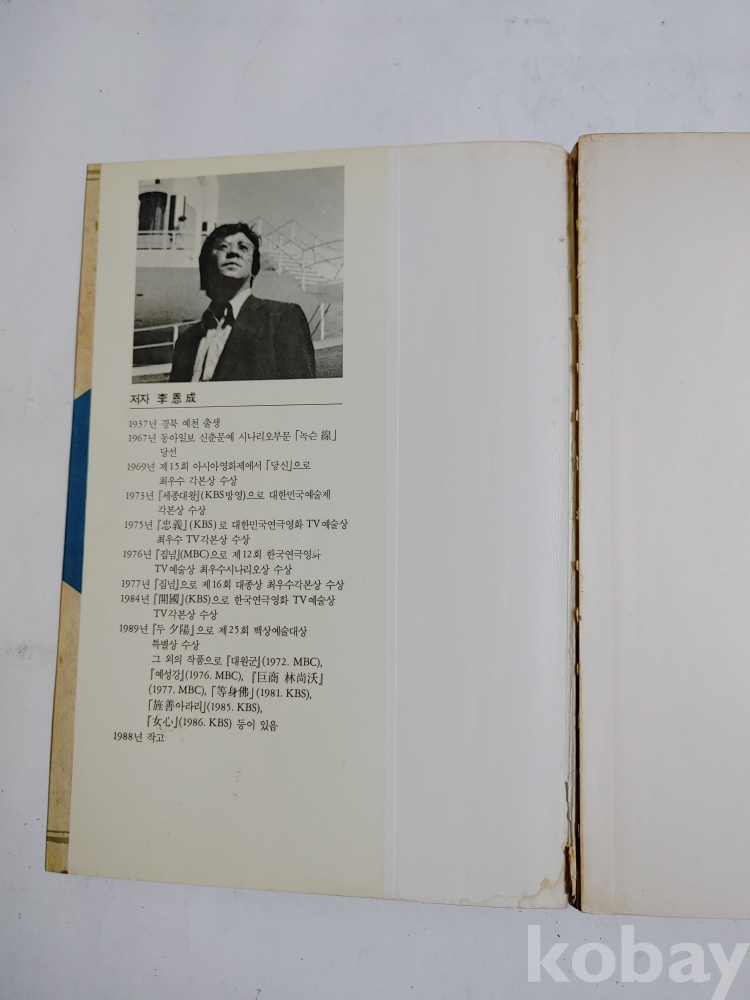 저자 李恩成
1937년 경북 예천 출생
1967년 동아일보 신춘문예 시나리오부문 「녹슨 線」
당선
1969년 제15회 아시아영화제에서 「당신」으로
최우수 각본상 수상
1973년 『세종대왕』(KBS방영)으로 대한민국예술제
각본상 수상
1975년 『忠義』(KBS)로 대한민국연극영화 TV예술상
최우수 TV각본상 수상
1976년 『집념』(MBC)으로 제12회 한국연극영화
TV예술상 최우수시나리오상 수상
1977년 『집념』으로 제16회 대종상 최우수각본상 수상
1984년 『開國』(KBS)으로 한국연극영화 TV예술상
TV각본상 수상
1989년 『두 夕陽』으로 제25회 백상예술대상
특별상 수상
그 외의 작품으로 『대원군』(1972. MBC),
『예성강』(1976. MBC), 『巨商 林尙沃』
(1977. MBC), 「等身佛」(1981. KBS),
「旌善아라리」(1985. KBS),
『女心』(1986. KBS) 등이 있음
1988년 작고
kobay